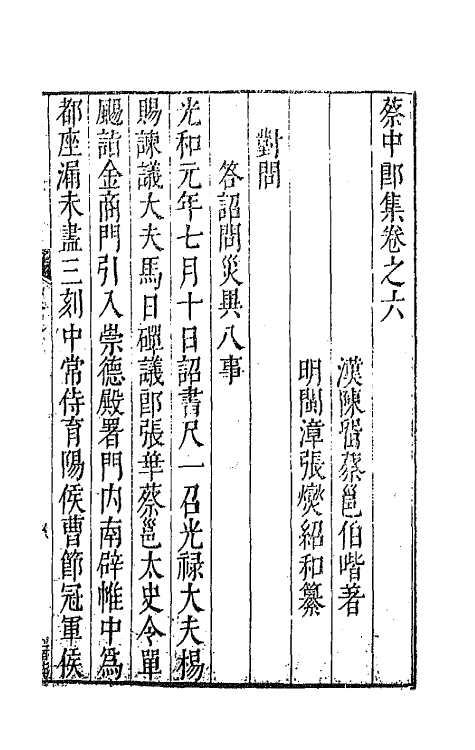 蔡中郎集卷之六
漢陳留蔡邕伯喈著
明閩漳張燮紹和纂
對問
答詔問災異八事
光和元年七月十日詔書尺一召光祿大夫楊
賜諫議大夫馬日磾議郎張華蔡邕太史令單
颺詣金商門引入崇德殿署門內南辟帷中為
都座漏未盡三刻中常侍育陽侯曹節冠軍侯